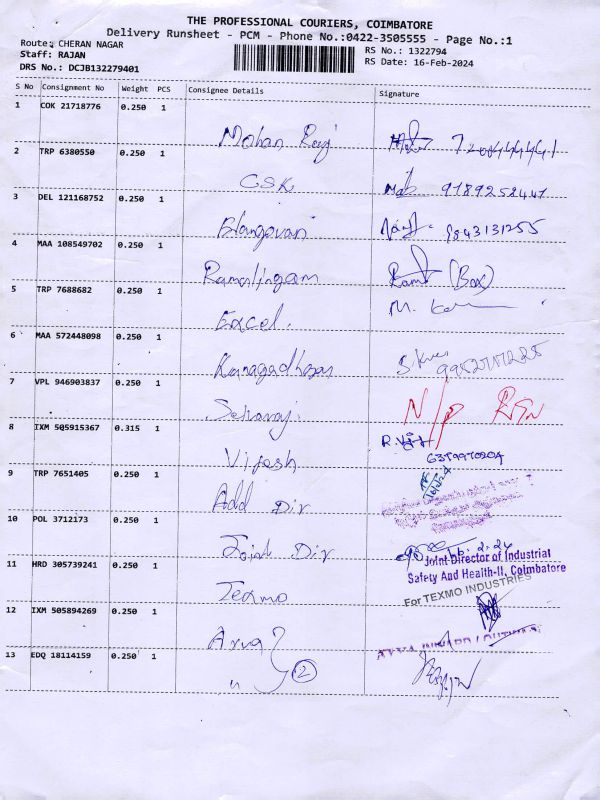 THE PROFESSIONAL COURIERS, COIMBATORE
Delivery Runsheet - PCM - Phone No.:0422-3505555 - Page No.:1
Route: CHERAN NAGAR
RS No.: 1322794
Staff: RAJAN
RS Date: 16-Feb-2024
DRS No.: DCJB132279401
S No Consignment No Weight PCS Consignee Details Signature
1 COK 21718776 0.250 1
Mohan Raj
2 TRP 6380550 0.250 1
GSK 9189258441
3 DEL 121168752 0.250 1
Elangovan 9843131255
4 MAA 108549702 0.250 1
Ramalingam (Box)
5 TRP 7688682 0.250 1
Excel. M.
6 MAA 572448098 0.250 1
7 VPL 946903837 0.250 1
Selvaraj. N/P RTN
8 IXM 505915367 0.315 1
Vijesh
9 TRP 7651405 0.250 1
Add Dir
10 POL 3712173 0.250 1
Joint Dir 16.2.24
Joint Director of Industrial
Safety And Health-II, Coimbatore
11 HRD 305739241 0.250 1
Texmo For TEXMO INDUSTRIES
12 IXM 505894269 0.250 1
Arya
13 EDQ 18114159 0.250 1
" 2